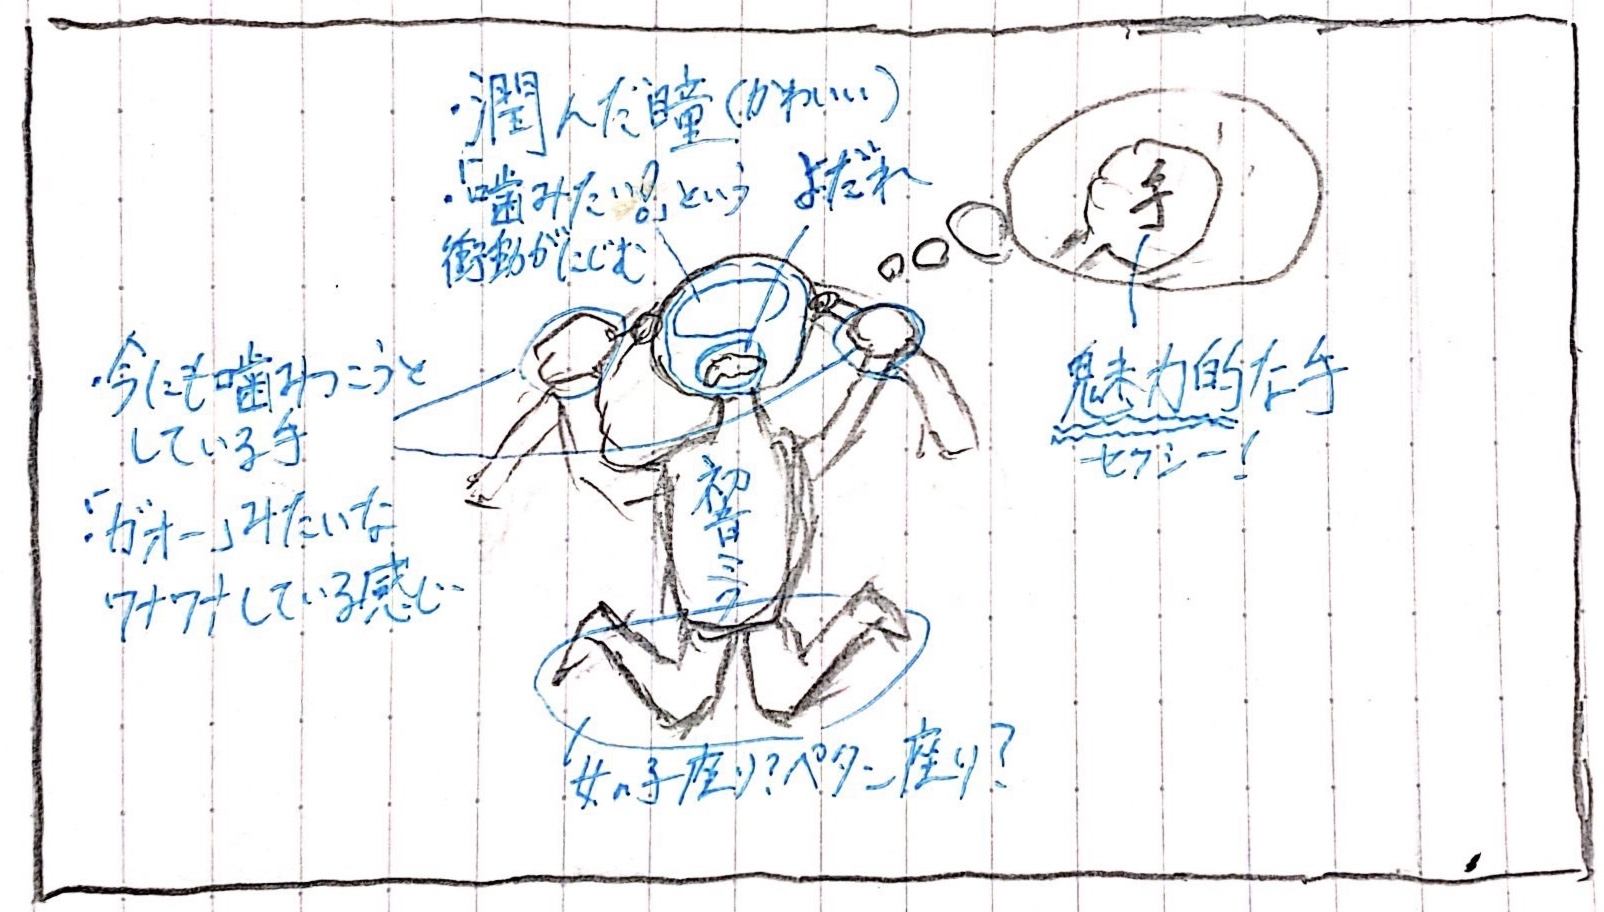 ・潤んだ瞳(かわいい)
・「噛みたい!」という
衝動がにじむ
よだれ
手
魅力的な手
セクシー!
・今にも噛みつこうと
している手
・「ガオー」みたいな
ワナワナしている感じ
初音ミク
女の子座り?ペタン座り?